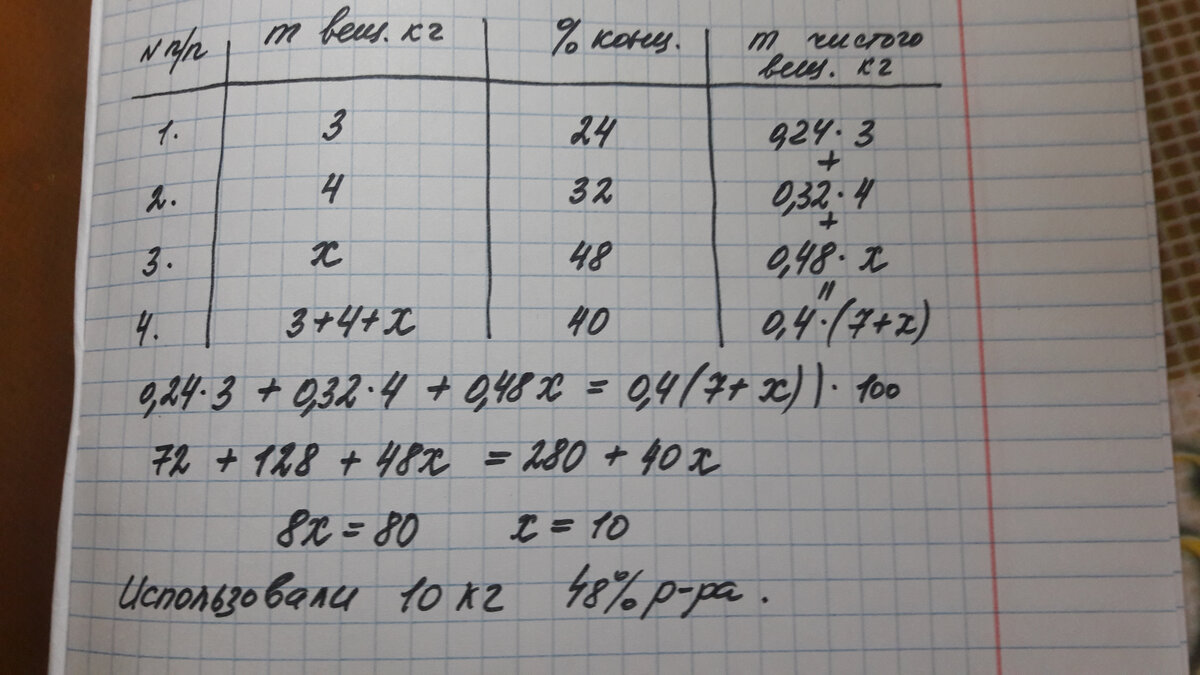 N п/п m вещ. кг % конц. m чистого
вещ. кг
1. 3 24 0,24 · 3
+
2. 4 32 0,32 · 4
+
3. x 48 0,48 · x
=
4. 3+4+x 40 0,4 · (7+x)
0,24·3 + 0,32·4 + 0,48x = 0,4(7+x) | · 100
72 + 128 + 48x = 280 + 40x
8x = 80 x = 10
Использовали 10 кг 48% р-ра.